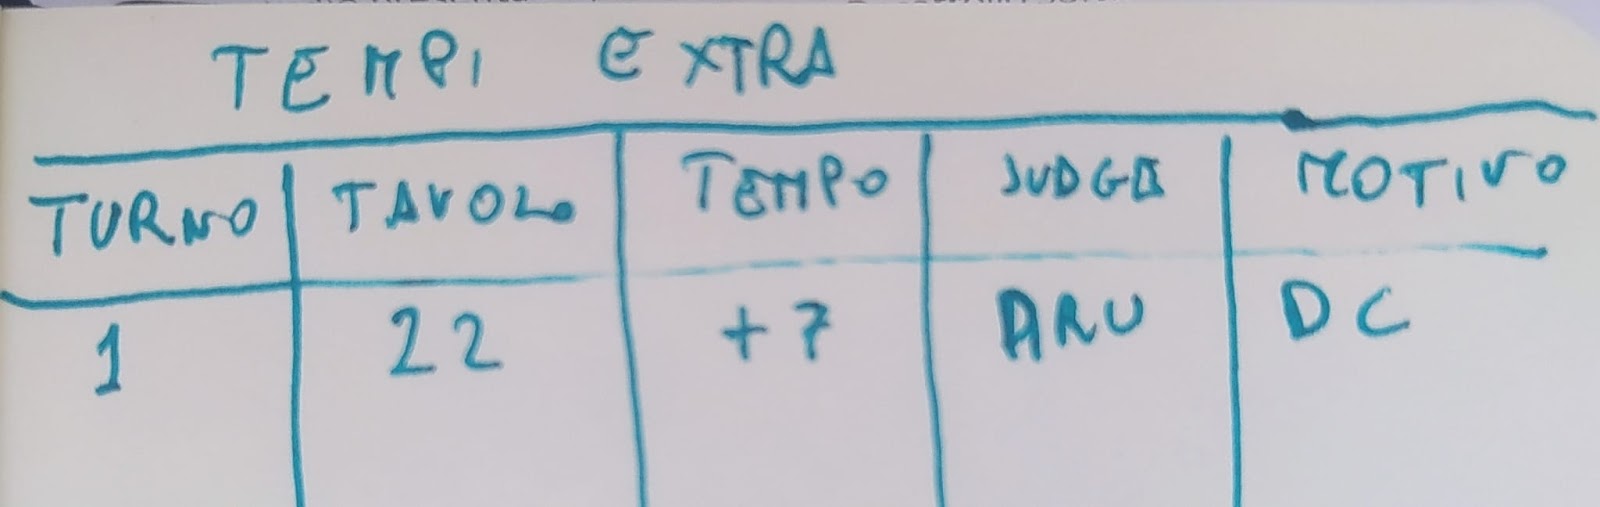 TEMPI EXTRA
TURNO TAVOLO TEMPO JUDGE MOTIVO
1 22 +7 ARU DC